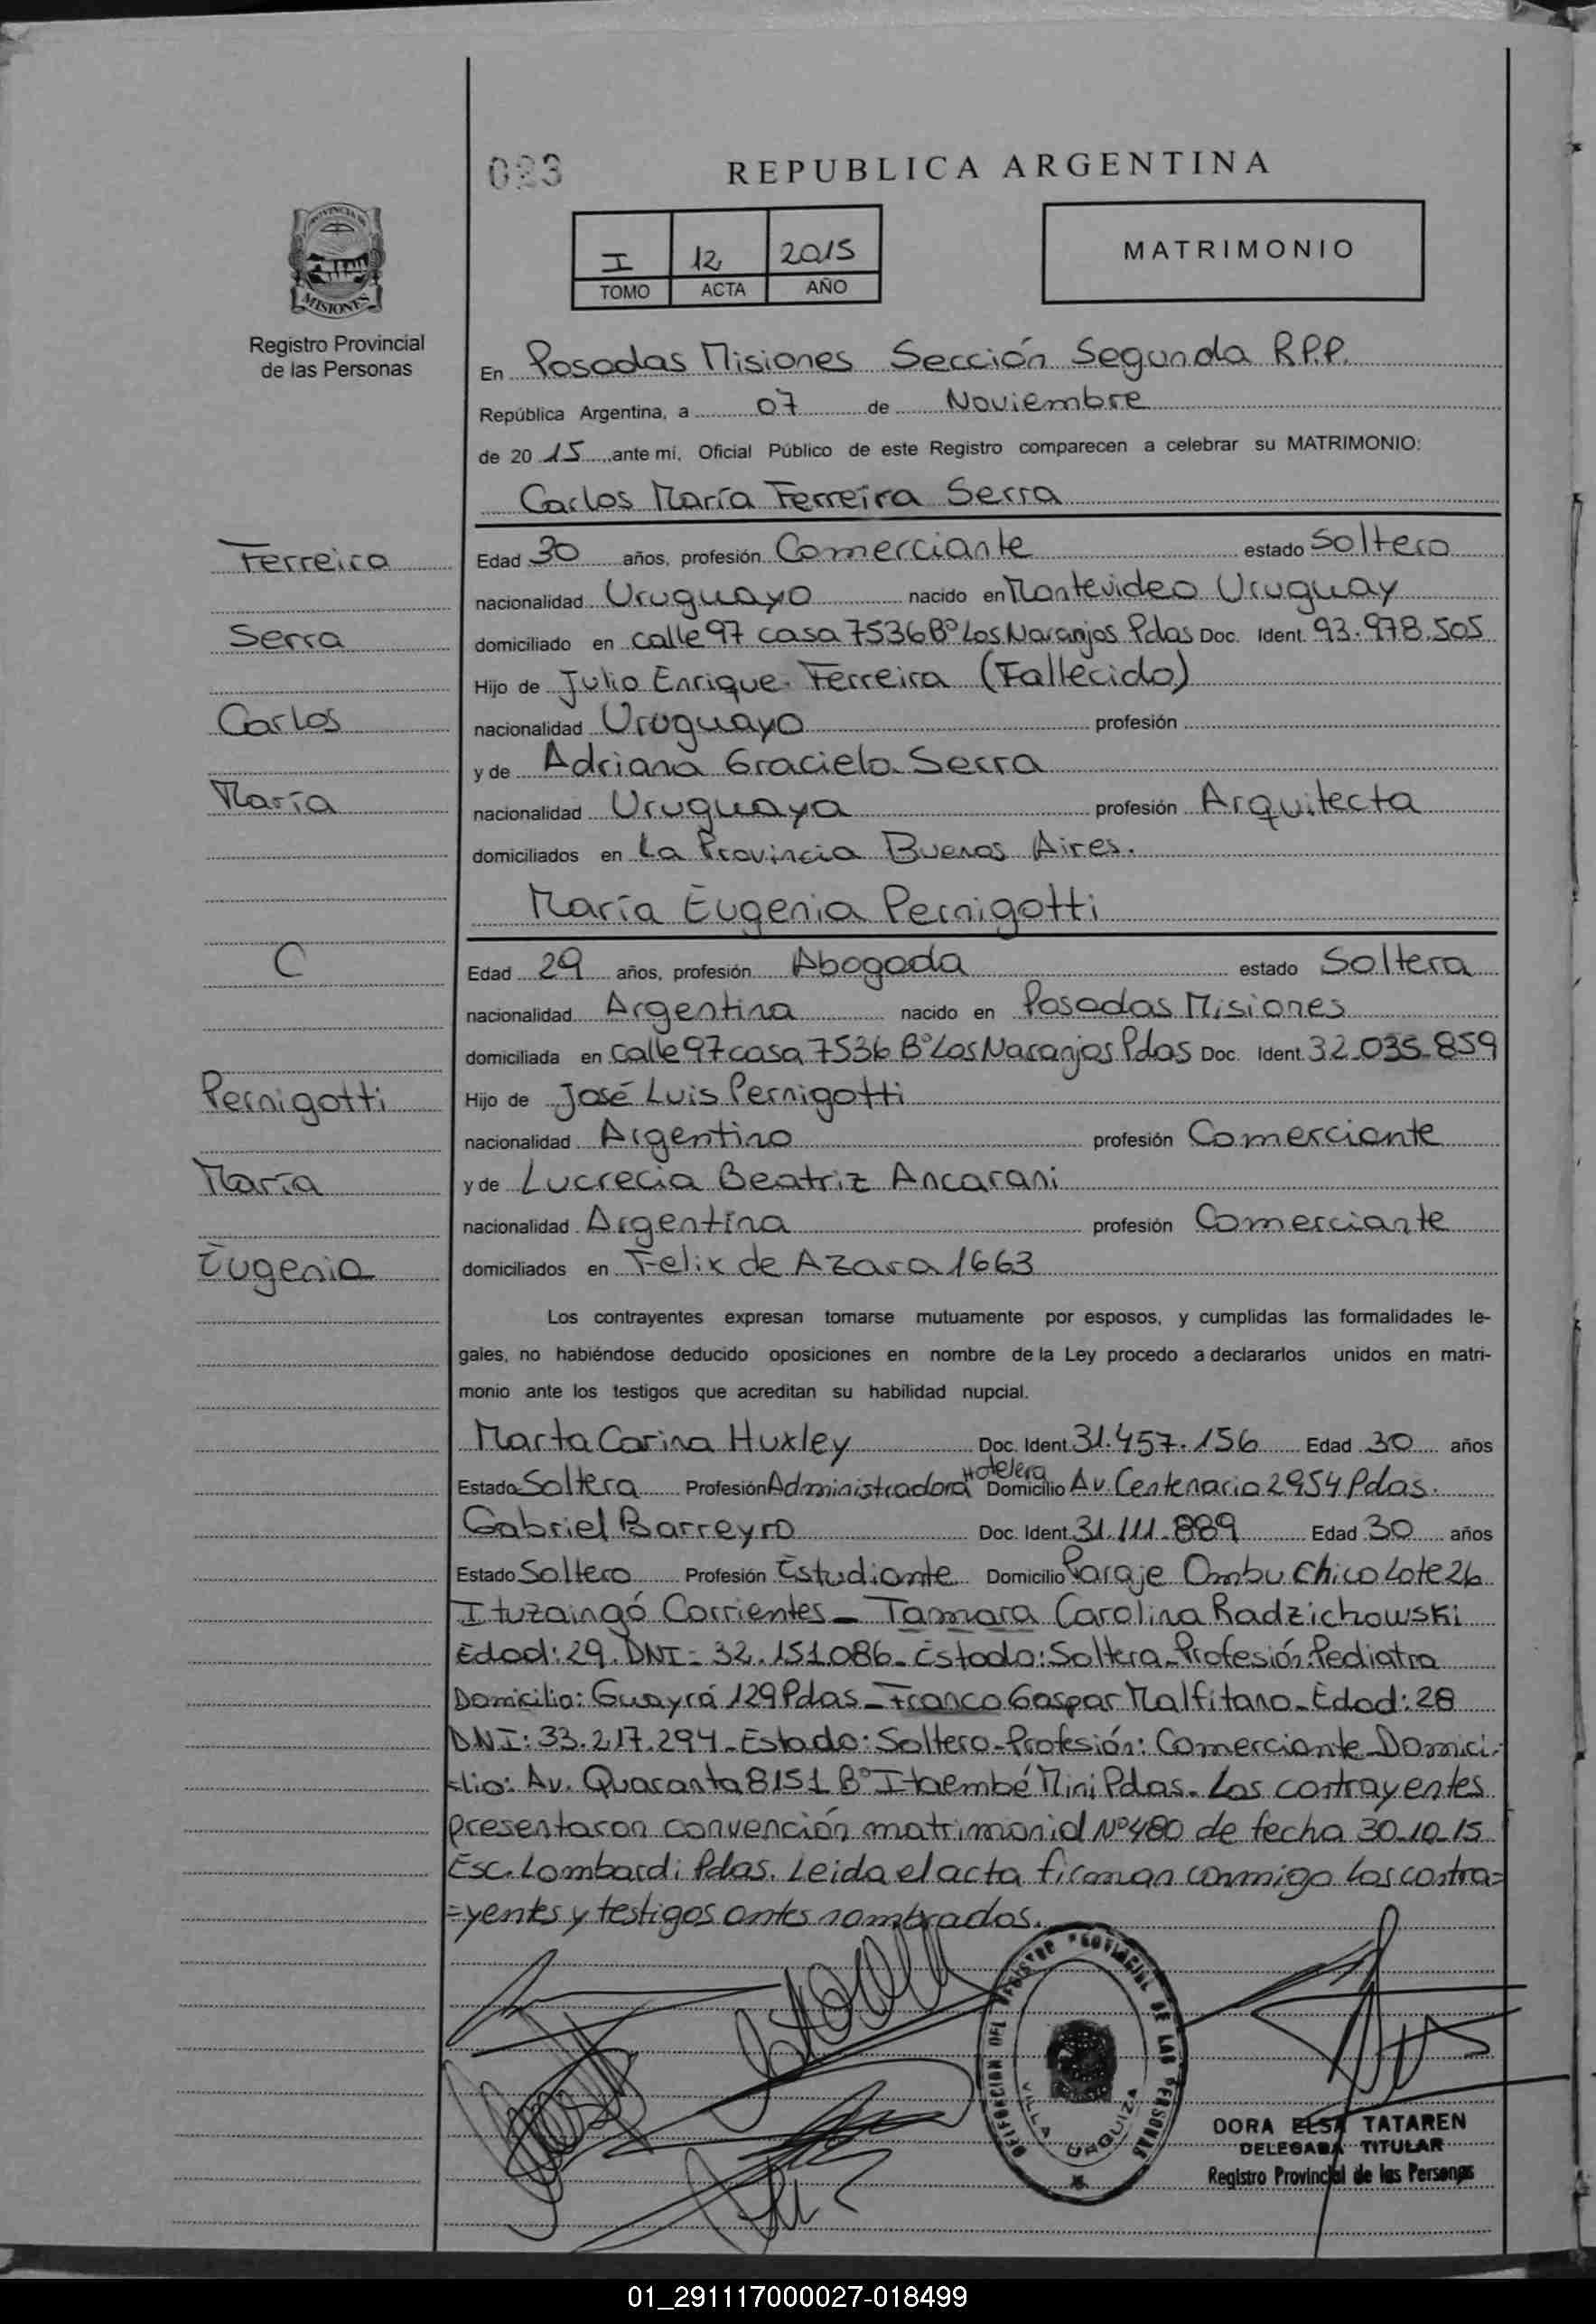 023
REPUBLICA ARGENTINA
I 12 2015
TOMO ACTA AÑO
MATRIMONIO
PROVINCIA DE
MISIONES
Registro Provincial
de las Personas
En Posadas Misiones Sección Segunda R.P.P.
República Argentina, a 07 de Noviembre
de 20 15 ante mi, Oficial Público de este Registro comparecen a celebrar su MATRIMONIO:
Carlos María Ferreira Serra
Ferreira
Serra
Carlos
María
C
Pernigotti
María
Eugenia
Edad 30 años, profesión Comerciante estado Soltero
nacionalidad Uruguayo nacido en Montevideo Uruguay
domiciliado en calle 97 casa 7536 B° Los Naranjos Pdas Doc. Ident. 93.978.505
Hijo de Julio Enrique Ferreira (Fallecido)
nacionalidad Uruguayo profesión
y de Adriana Graciela Serra
nacionalidad Uruguaya profesión Arquitecta
domiciliados en La Provincia Buenos Aires.
María Eugenia Pernigotti
Edad 29 años, profesión Abogada estado Soltera
nacionalidad Argentina nacido en Posadas Misiones
domiciliada en calle 97 casa 7536 B° Los Naranjos Pdas Doc. Ident. 32.035.859
Hijo de José Luis Pernigotti
nacionalidad Argentino profesión Comerciante
y de Lucrecia Beatriz Ancarani
nacionalidad Argentina profesión Comerciante
domiciliados en Felix de Azara 1663
Los contrayentes expresan tomarse mutuamente por esposos, y cumplidas las formalidades le-
gales, no habiéndose deducido oposiciones en nombre de la Ley procedo a declararlos unidos en matri-
monio ante los testigos que acreditan su habilidad nupcial.
Marta Carina Huxley Doc. Ident 31.457.156 Edad 30 años
Estado Soltera Profesión Administradora Hotelera Domicilio Av. Centenario 2954 Pdas.
Gabriel Barreyro Doc. Ident 31.111.889 Edad 30 años
Estado Soltero Profesión Estudiante Domicilio Paraje Ombu Chico Lote 26
Ituzaingó Corrientes _ Tamara Carolina Radzichowski
Edad: 29. DNI = 32.151.086_ Estado: Soltera_ Profesión: Pediatra
Domicilio: Guayrá 129 Pdas_ Franco Gaspar Malfitano_ Edad: 28
DNI: 33.217.294_ Estado: Soltero_ Profesión: Comerciante_ Domici-
lio: Av. Quaranta 8151 B° Itaembé Mini Pdas. Los contrayentes
presentaron convención matrimonial N° 480 de fecha 30-10-15
Esc. Lombardi Pdas. Leida el acta firman conmigo los contra=
=yentes y testigos antes nombrados.
DELEGACION DEL REGISTRO PROVINCIAL DE LAS PERSONAS
VILLA URQUIZA
DORA ELSA TATAREN
DELEGADA TITULAR
Registro Provincial de las Personas
01_291117000027-018499